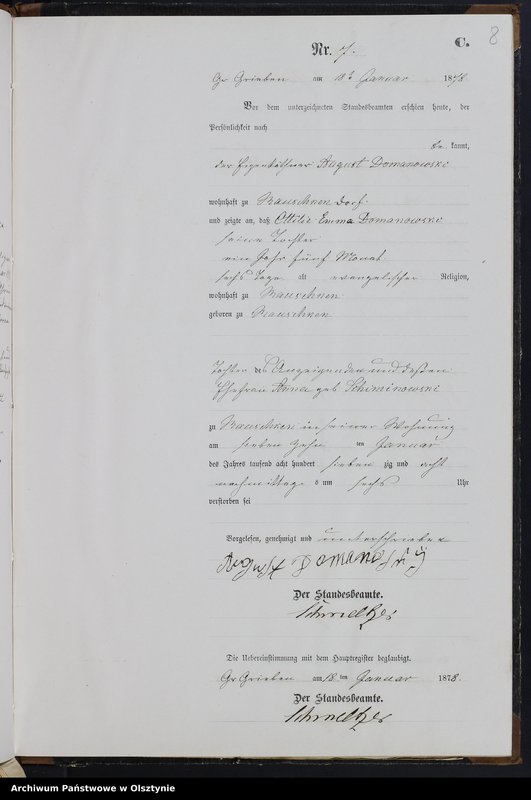 8
C.
Nr. 7.
Gr Grieben am 18t Januar 1878.
Vor dem unterzeichneten Standesbeamten erschien heute, der
Persönlichkeit nach
be kannt,
der Eigenkäthner August Domanowski
wohnhaft zu Rauschken Dorf.
und zeigte an, daß Ottilie Emma Domanowski
seine Tochter
ein Jahr fünf Monat
sechs Tage alt evangelischer Religion,
wohnhaft zu Rauschken
geboren zu Rauschken
Tochter des Anzeigenden und deßen
Ehefrau Anna geb Schiminowski
zu Rauschken in seiner Wohnung
am sieben zehn ten Januar
des Jahres tausend acht hundert sieben zig und acht
nachmittags um sechs Uhr
verstorben sei
Vorgelesen, genehmigt und unterschrieben
August Domanofski
Der Standesbeamte.
Die Uebereinstimmung mit dem Hauptregister beglaubigt.
Gr Grieben am 18. ten Januar 1878.
Der Standesbeamte.
Archiwum Państwowe w Olsztynie